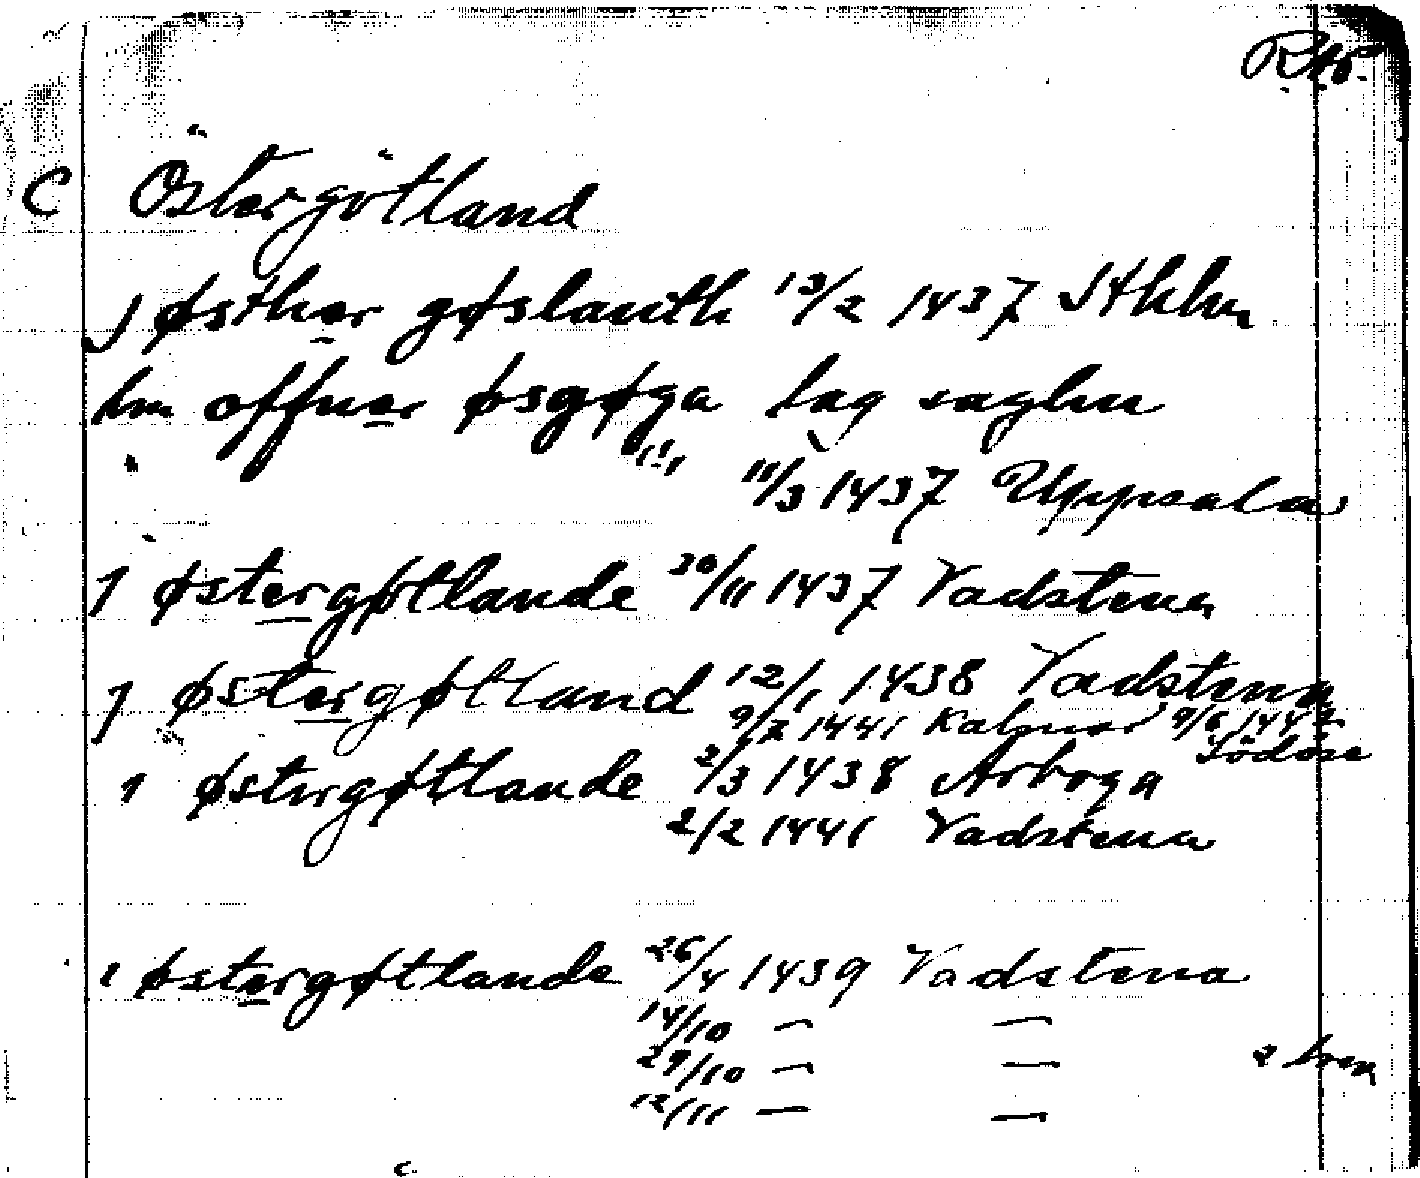 C Östergötland
J østher gøslanth 13/2 1437 Sthlm
hm offuer øsgøga lag saghu
(!!) 11/3 1437 Uppsala
J østergøtlande 30/11 1437 Vadstena
J østergøtland 12/1 1438 Vadstena
9/2 1441 Kalmar 9/6 1442
Lödöse
1 østergøtlande 2/3 1438 Arboga
2/2 1441 Vadstena
1 østergøtlande 26/4 1439 Vadstena
14/10 — —
29/10 — — 2 brev
12/11 — —